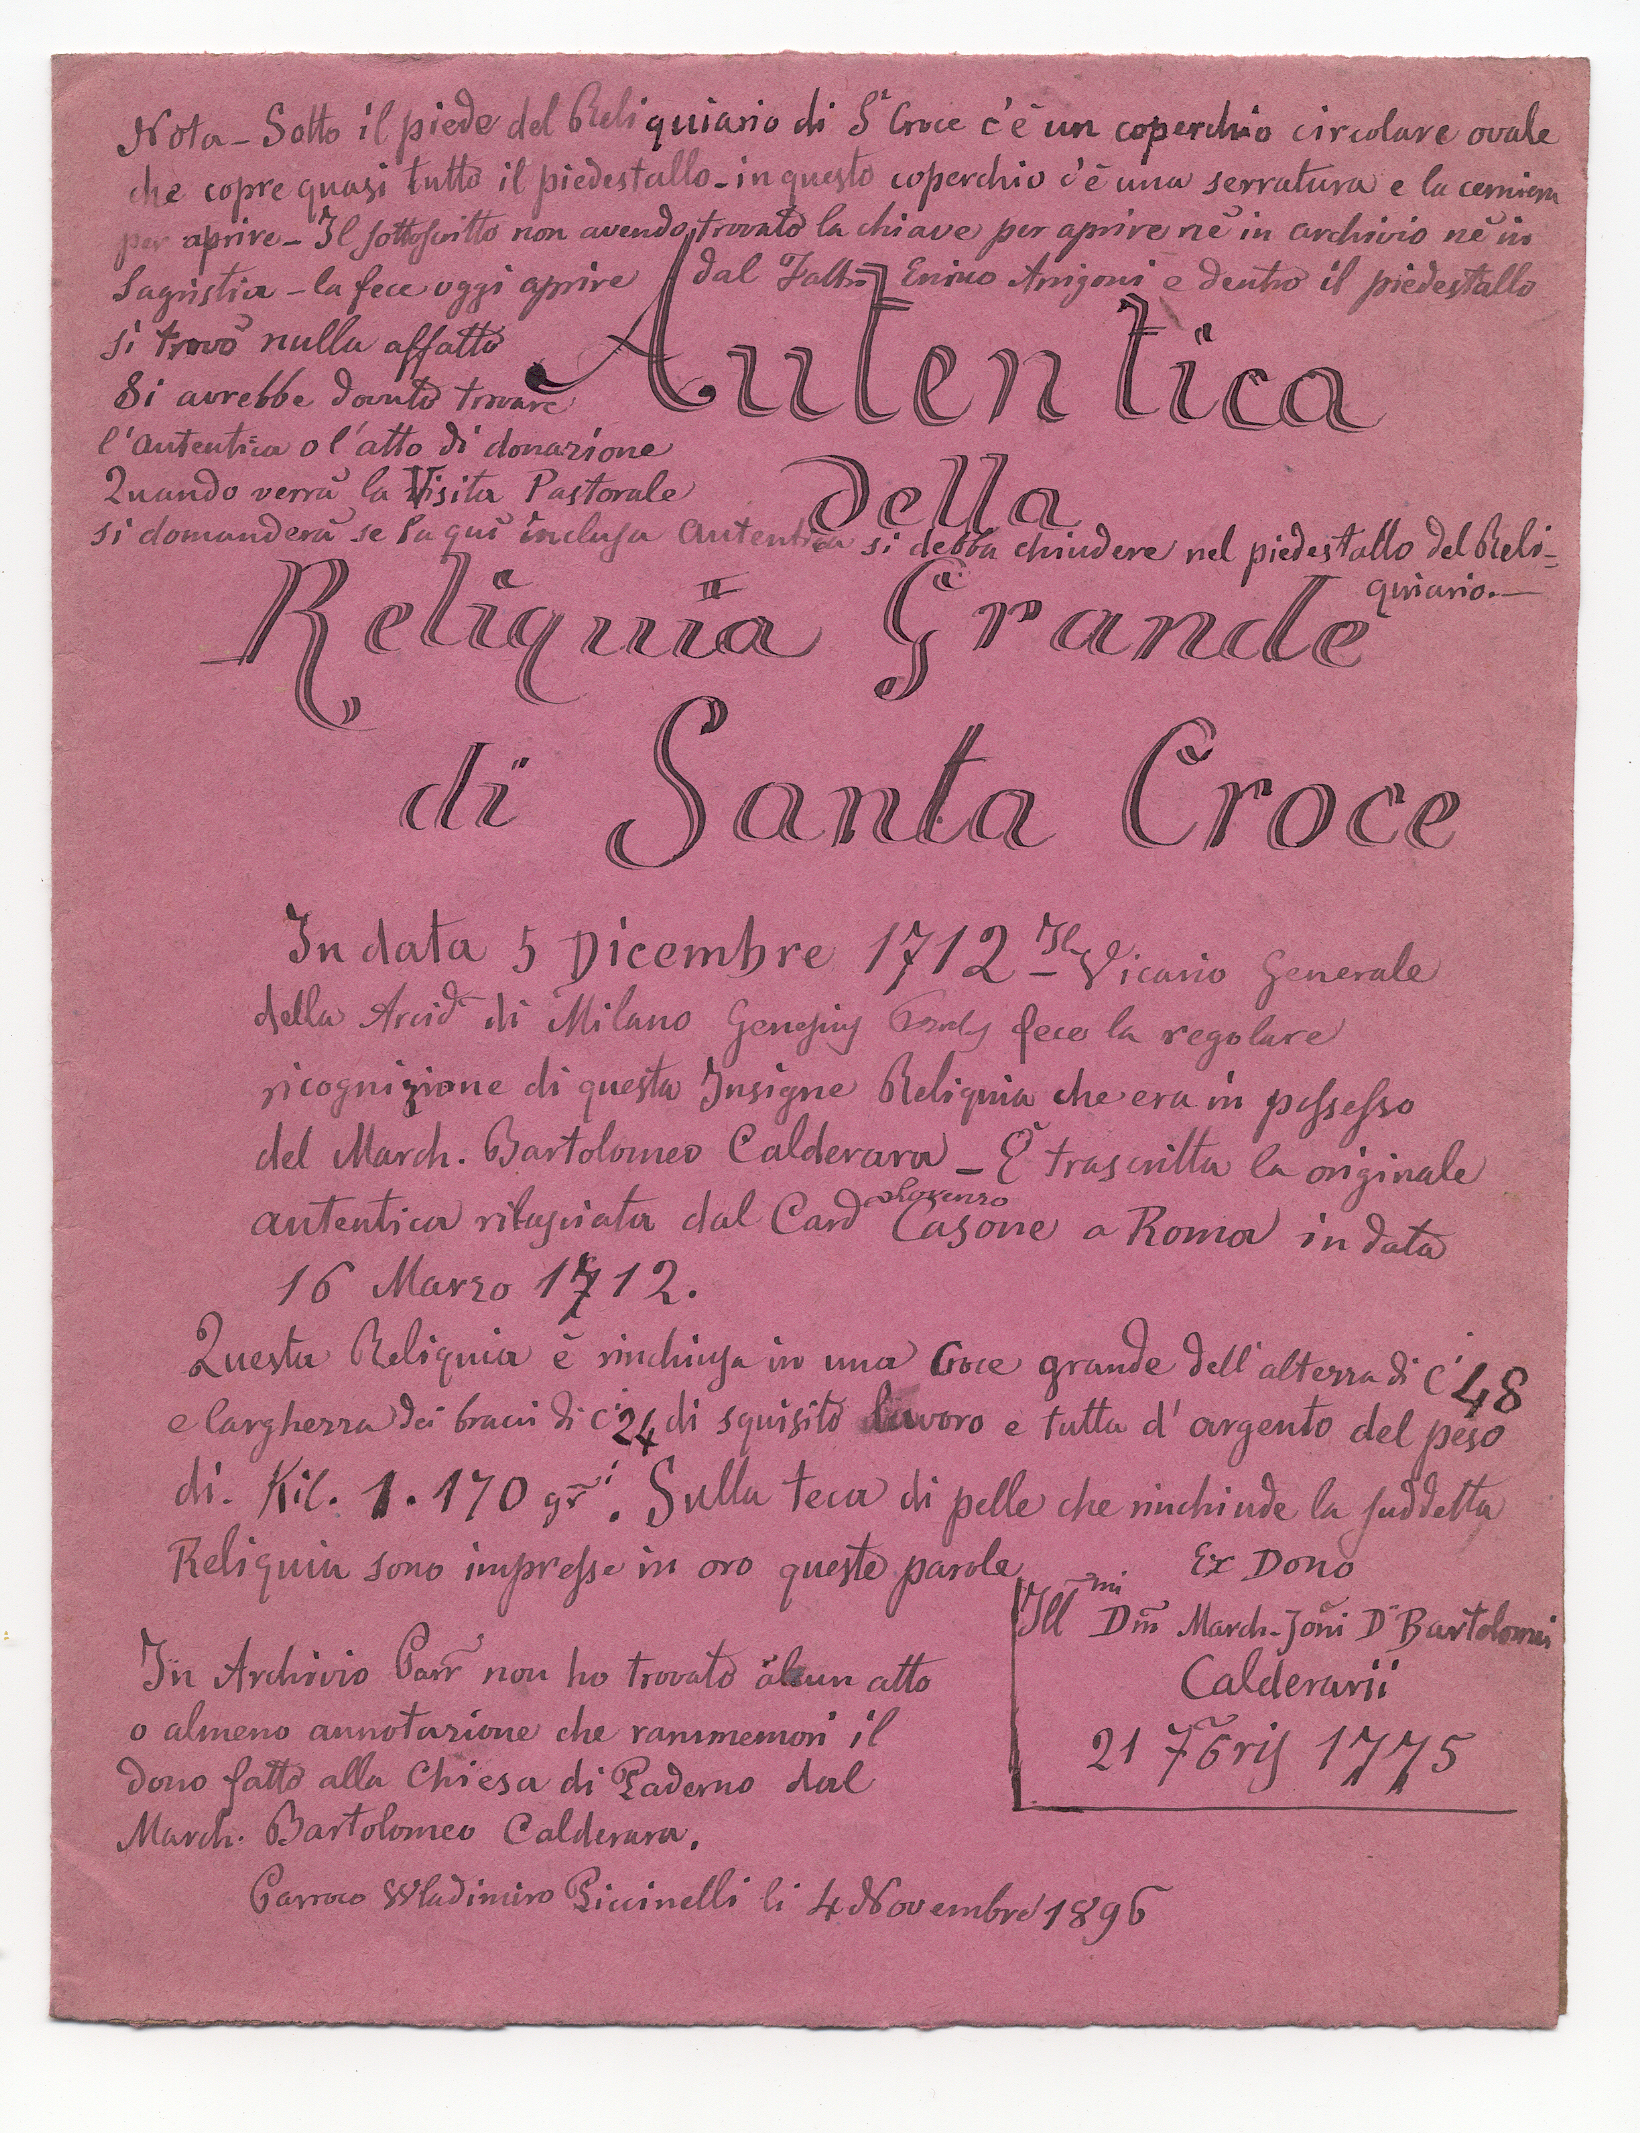 Nota - Sotto il piede del Reliquiario di Sa Croce c'è un coperchio circolare ovale
che copre quasi tutto il piedestallo - in questo coperchio c'è una serratura e la cerniera
per aprire - Il sottoscritto non avendo trovato la chiave per aprire nè in archivio nè in
Sagristia - la fece oggi aprire dal Enrico Arrigoni e dentro il piedestallo
si trovò nulla affatto
Si avrebbe dovuto trovare
l'autentica o l'atto di donazione
Quando verrà la Visita Pastorale
si domanderà se la qui inclusa autentica si debba chiudere nel piedestallo del Reli-
quiario.—
Autentica
della
Reliquia Grande
di Santa Croce
In data 5 Dicembre 1712 - Il Vicario Generale
della Arcid di Milano fece la regolare
ricognizione di questa Insigne Reliquia che era in possesso
del March. Bartolomeo Calderara - È trascritta la originale
autentica rilasciata dal Card Lorenzo Casone a Roma in data
16 Marzo 1712.
Questa Reliquia è rinchiusa in una Croce grande dell'altezza di Ci 48
e larghezza dei bracci di Ci 24 di squisito lavoro e tutta d'argento del peso
di. Kil. 1.170 gri. Sulla teca di pelle che rinchiude la suddetta
Reliquia sono impresse in oro queste parole
Ex Dono
Illmi Dm̄ March. Joñi Dⁿ Bartolomei
Calderarii
21 7bris 1775
In Archivio Parr non ho trovato alcun atto
o almeno annotazione che rammemori il
dono fatto alla Chiesa di Paderno dal
March. Bartolomeo Calderara.
Parroco Wladimiro Piccinelli li 4 Novembre 1896